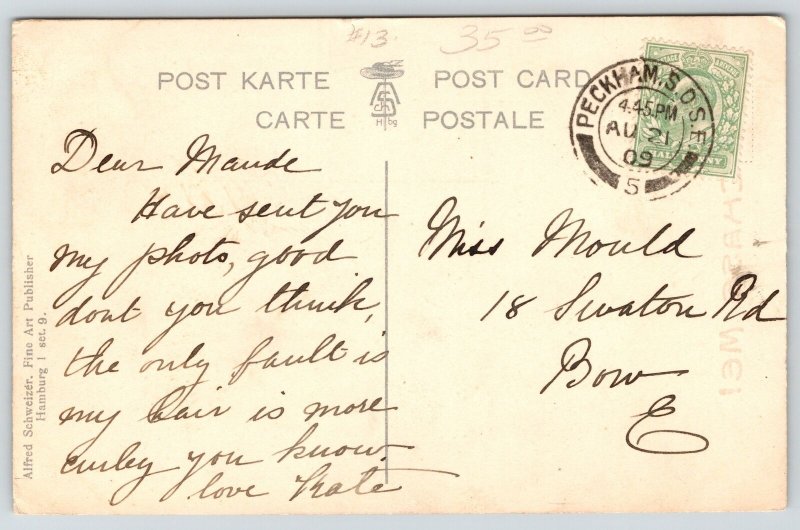 #13.
35 00
POST KARTE
POST CARD
CARTE
POSTALE
H bg
PECKHAM. S.O S.E
4.45 PM
AU 21
09
5
Dear Maude
Have sent you
my photo, good
dont you think,
the only fault is
my hair is more
curley you know
love Kate
Miss Mould
18 Swaton Rd
Bow
E
Alfred Schweizer. Fine Art Publisher
Hamburg 1 set. 9.